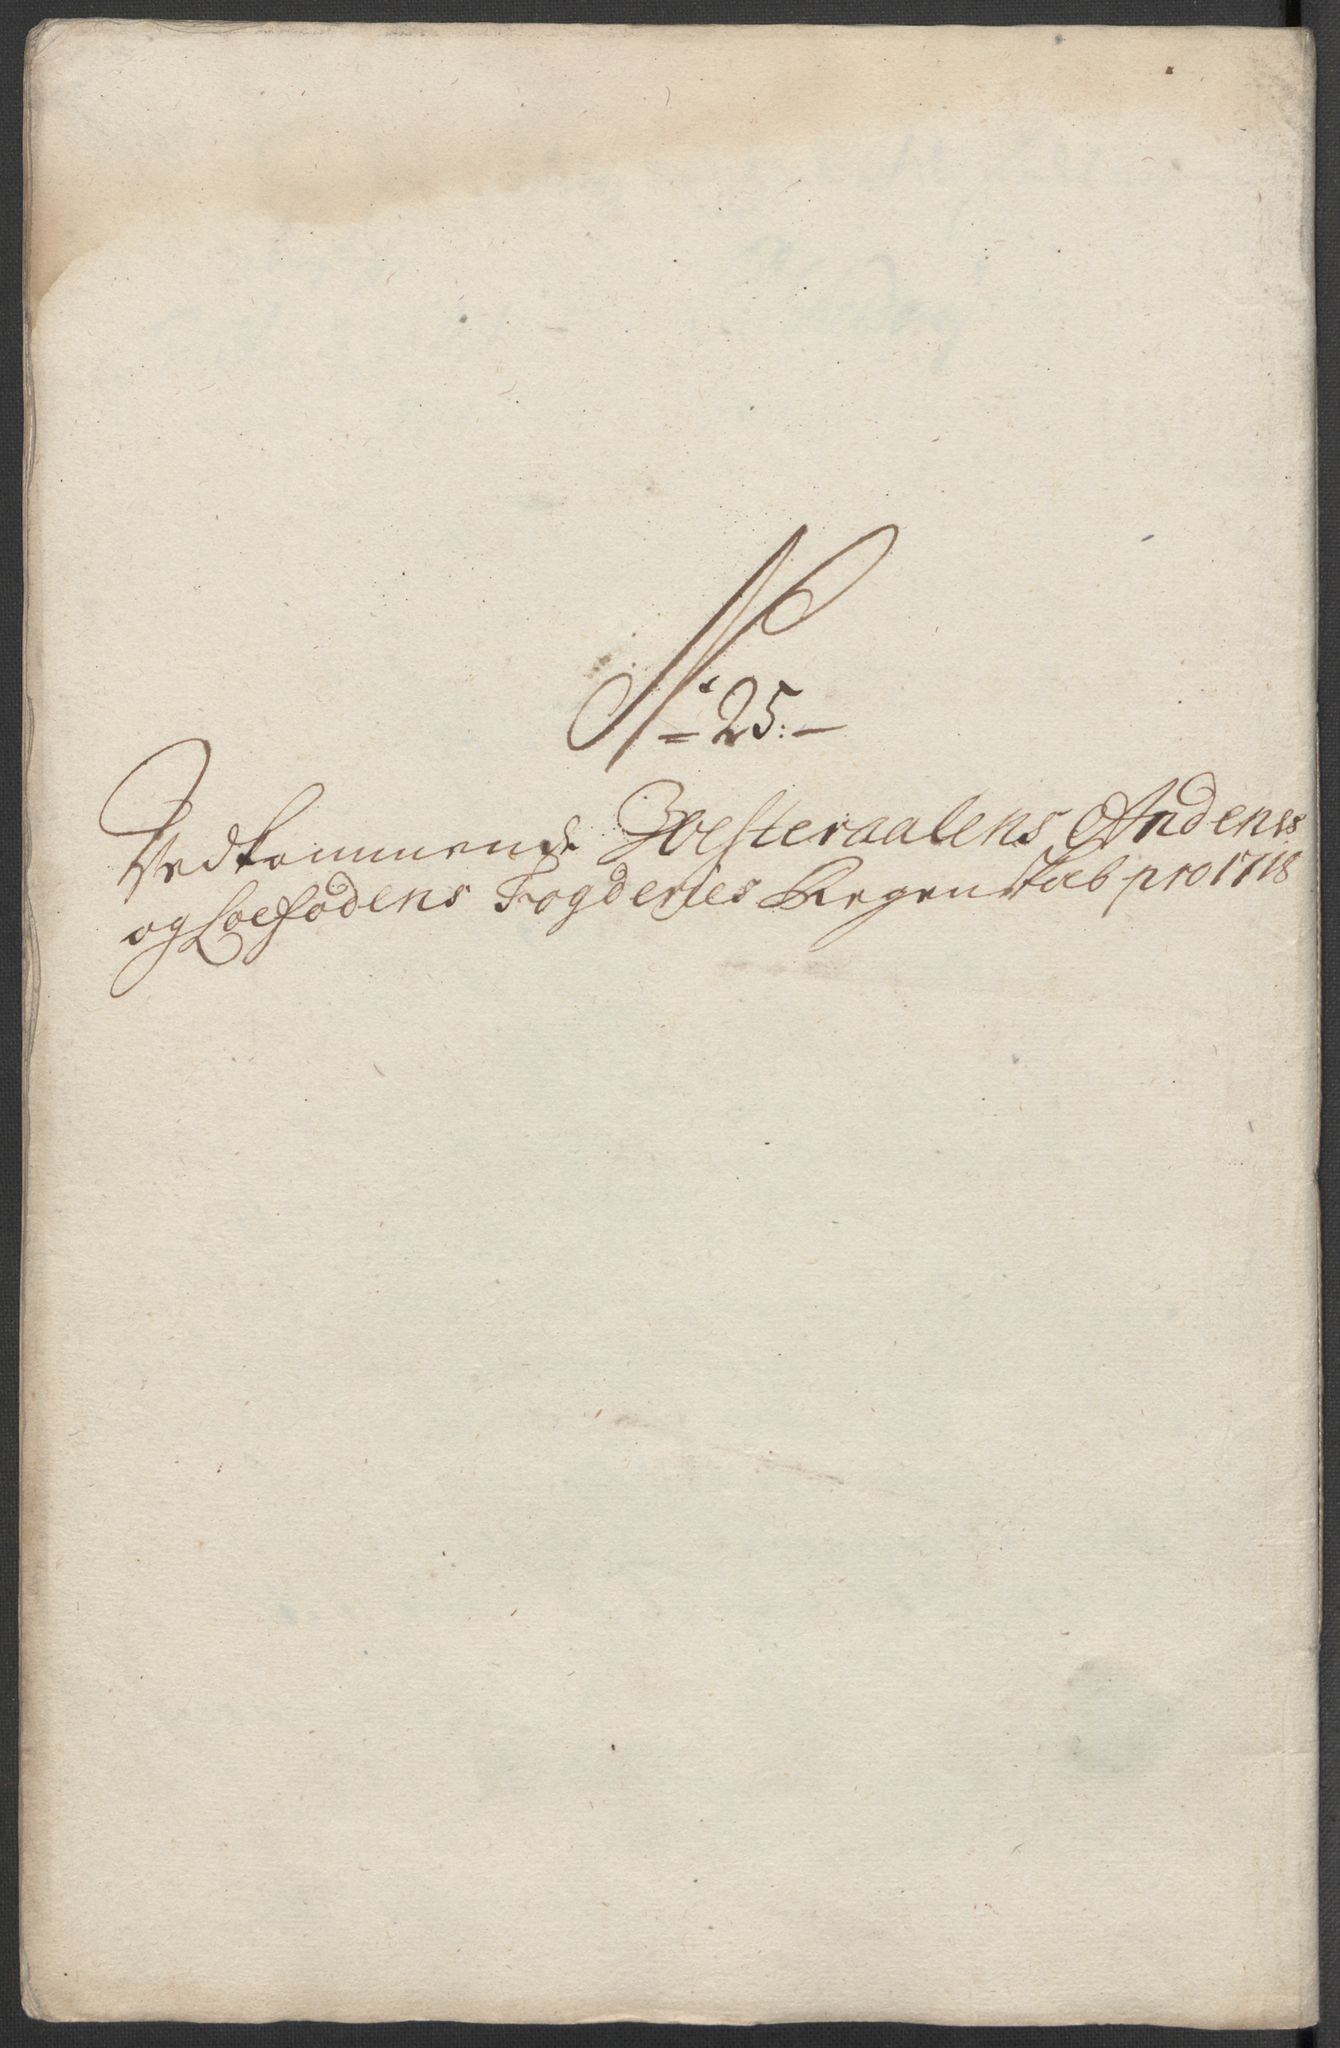 No 25:
Vedkommende Westeraalens Andenes
og Loefodens Fogderies Regenskab pro 1718